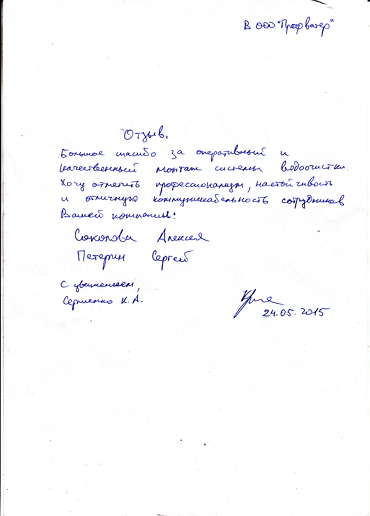 В ООО "Профватер"
Отзыв.
Большое спасибо за оперативный и
качественный монтаж системы водоочистки.
Хочу отметить профессионализм, настойчивость
и отличную коммуникабельность сотрудников
Вашей компании:
Соколова Алексея
Петерин Сергей
С уважением,
Сергиенко К.А.
24.05.2015